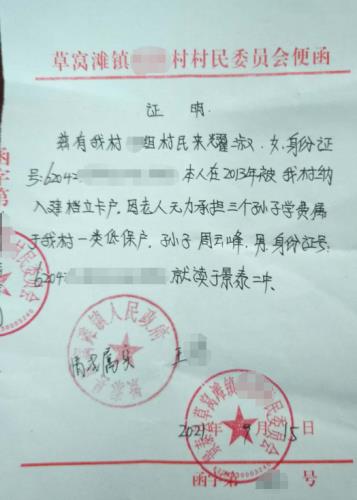 草窝滩镇 村村民委员会便函
证 明
兹有我村 组村民来耀淑、女、身份证
号:62042 本人在2013年被我村纳
入建档立卡户。因老人无力承担三个孙子学费属
于我村一类低保户。孙子周云峰、男、身份证号:
6204 就读于景泰二中。
函字第
草窝滩镇人民政府
情况属实 王
景泰县草窝滩镇 民委员会
2021年 月15日
函字第 号